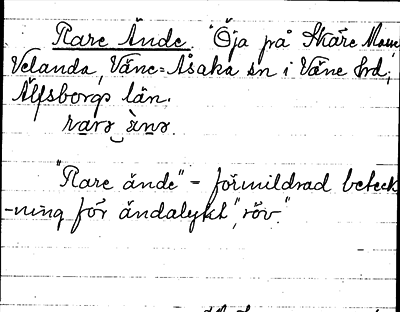 Rare Ände. "Öja på Skäre Mosse
Velanda, Väne-Åsaka sn i Väne hd,
Älfsborgs län.
rarə ànə.
"Rare ände" - förmildrad beteck
-ning för ändalykt, "röv."